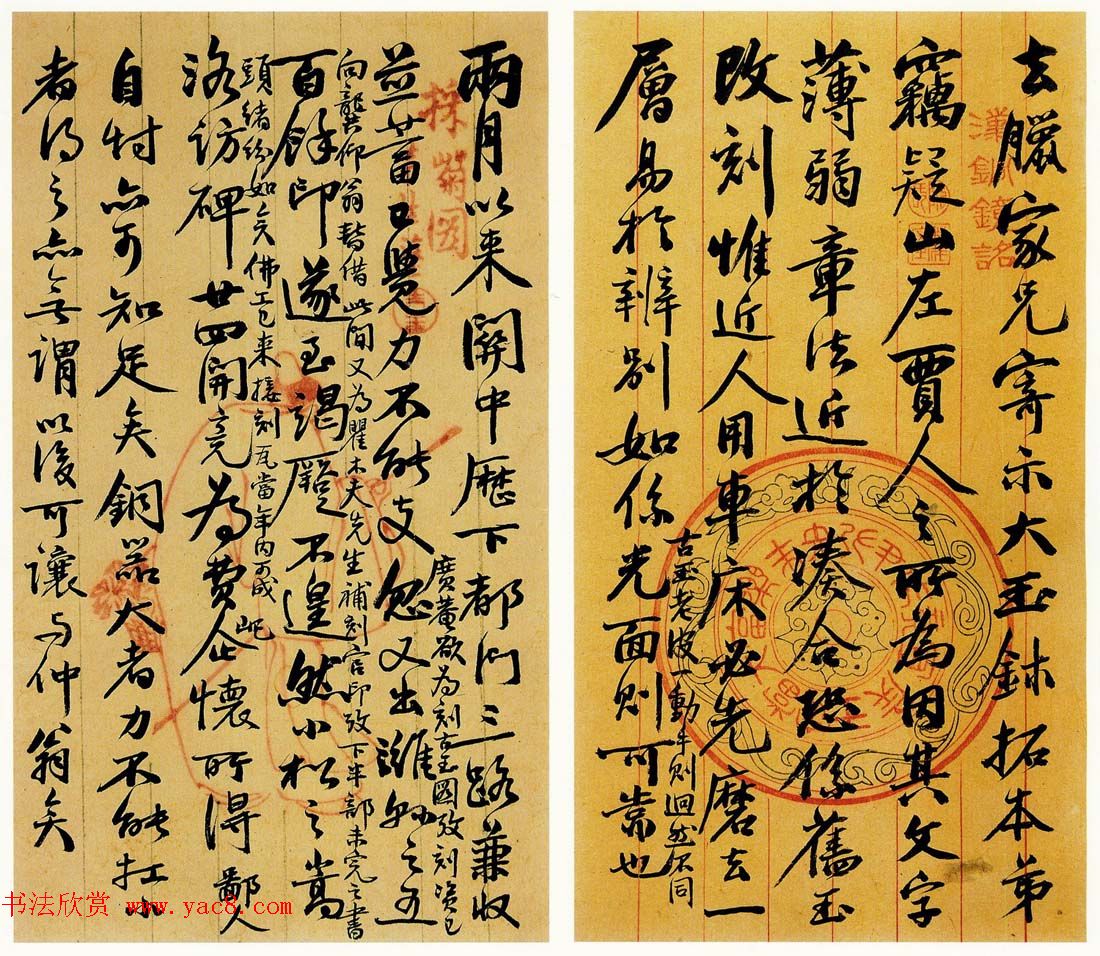 去臘家兄寄示大玉鉥拓本弟
竊疑山左賈人之所為因其文字
薄弱章法近於湊合恐係舊玉
改刻惟近人用車床必先磨去一
古玉老皮一動手則迥然不同
層易於辨別如係光面則可 也
漢銅鏡銘
兩月以來關中歷下都門三路兼收
廣菴欲為刻古玉圖攷刻資已
並蓄已覺力不能支忽又出濰縣之五
向龔仰翁暫借此間又為瞿木夫先生補刻官印攷下半部未完之書
百餘印遂至竭蹶不遑然小松之嵩
頭緒紛如矣佛工已來接刻瓦當年內可成
洛訪碑廿四開竟為費屺懷所得鄙人
自忖亦可知足矣銅器大者力不能扛小
者得之亦無謂以後可讓与仲翁矣
採菊圖
书法欣赏 www.yac8.com